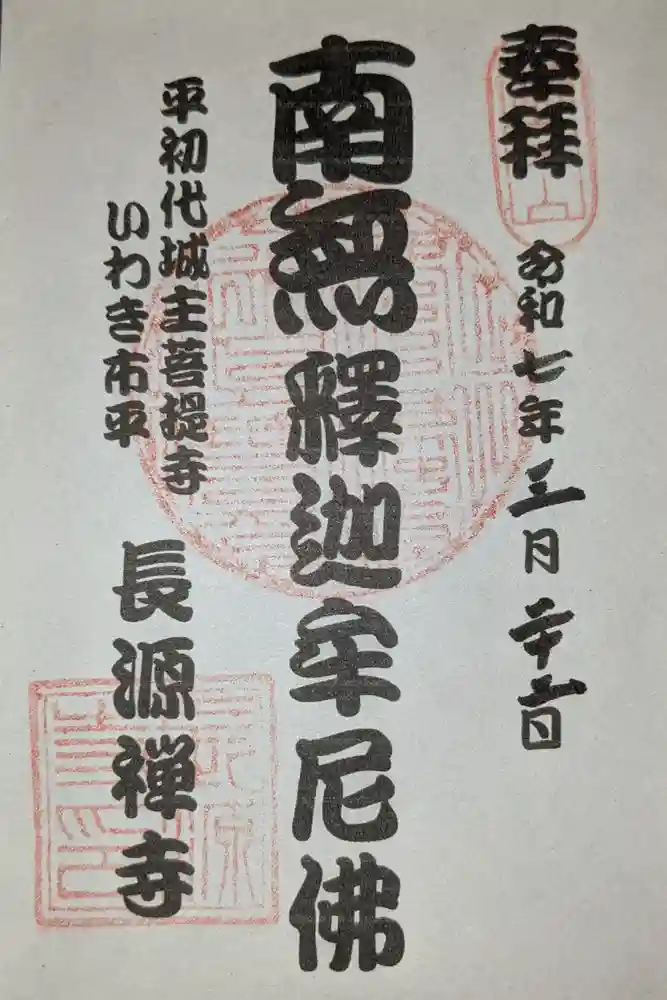 奉拝
令和七年三月二十一日
南無釋迦牟尼佛
平初代城主菩提寺
いわき市平
長源禅寺